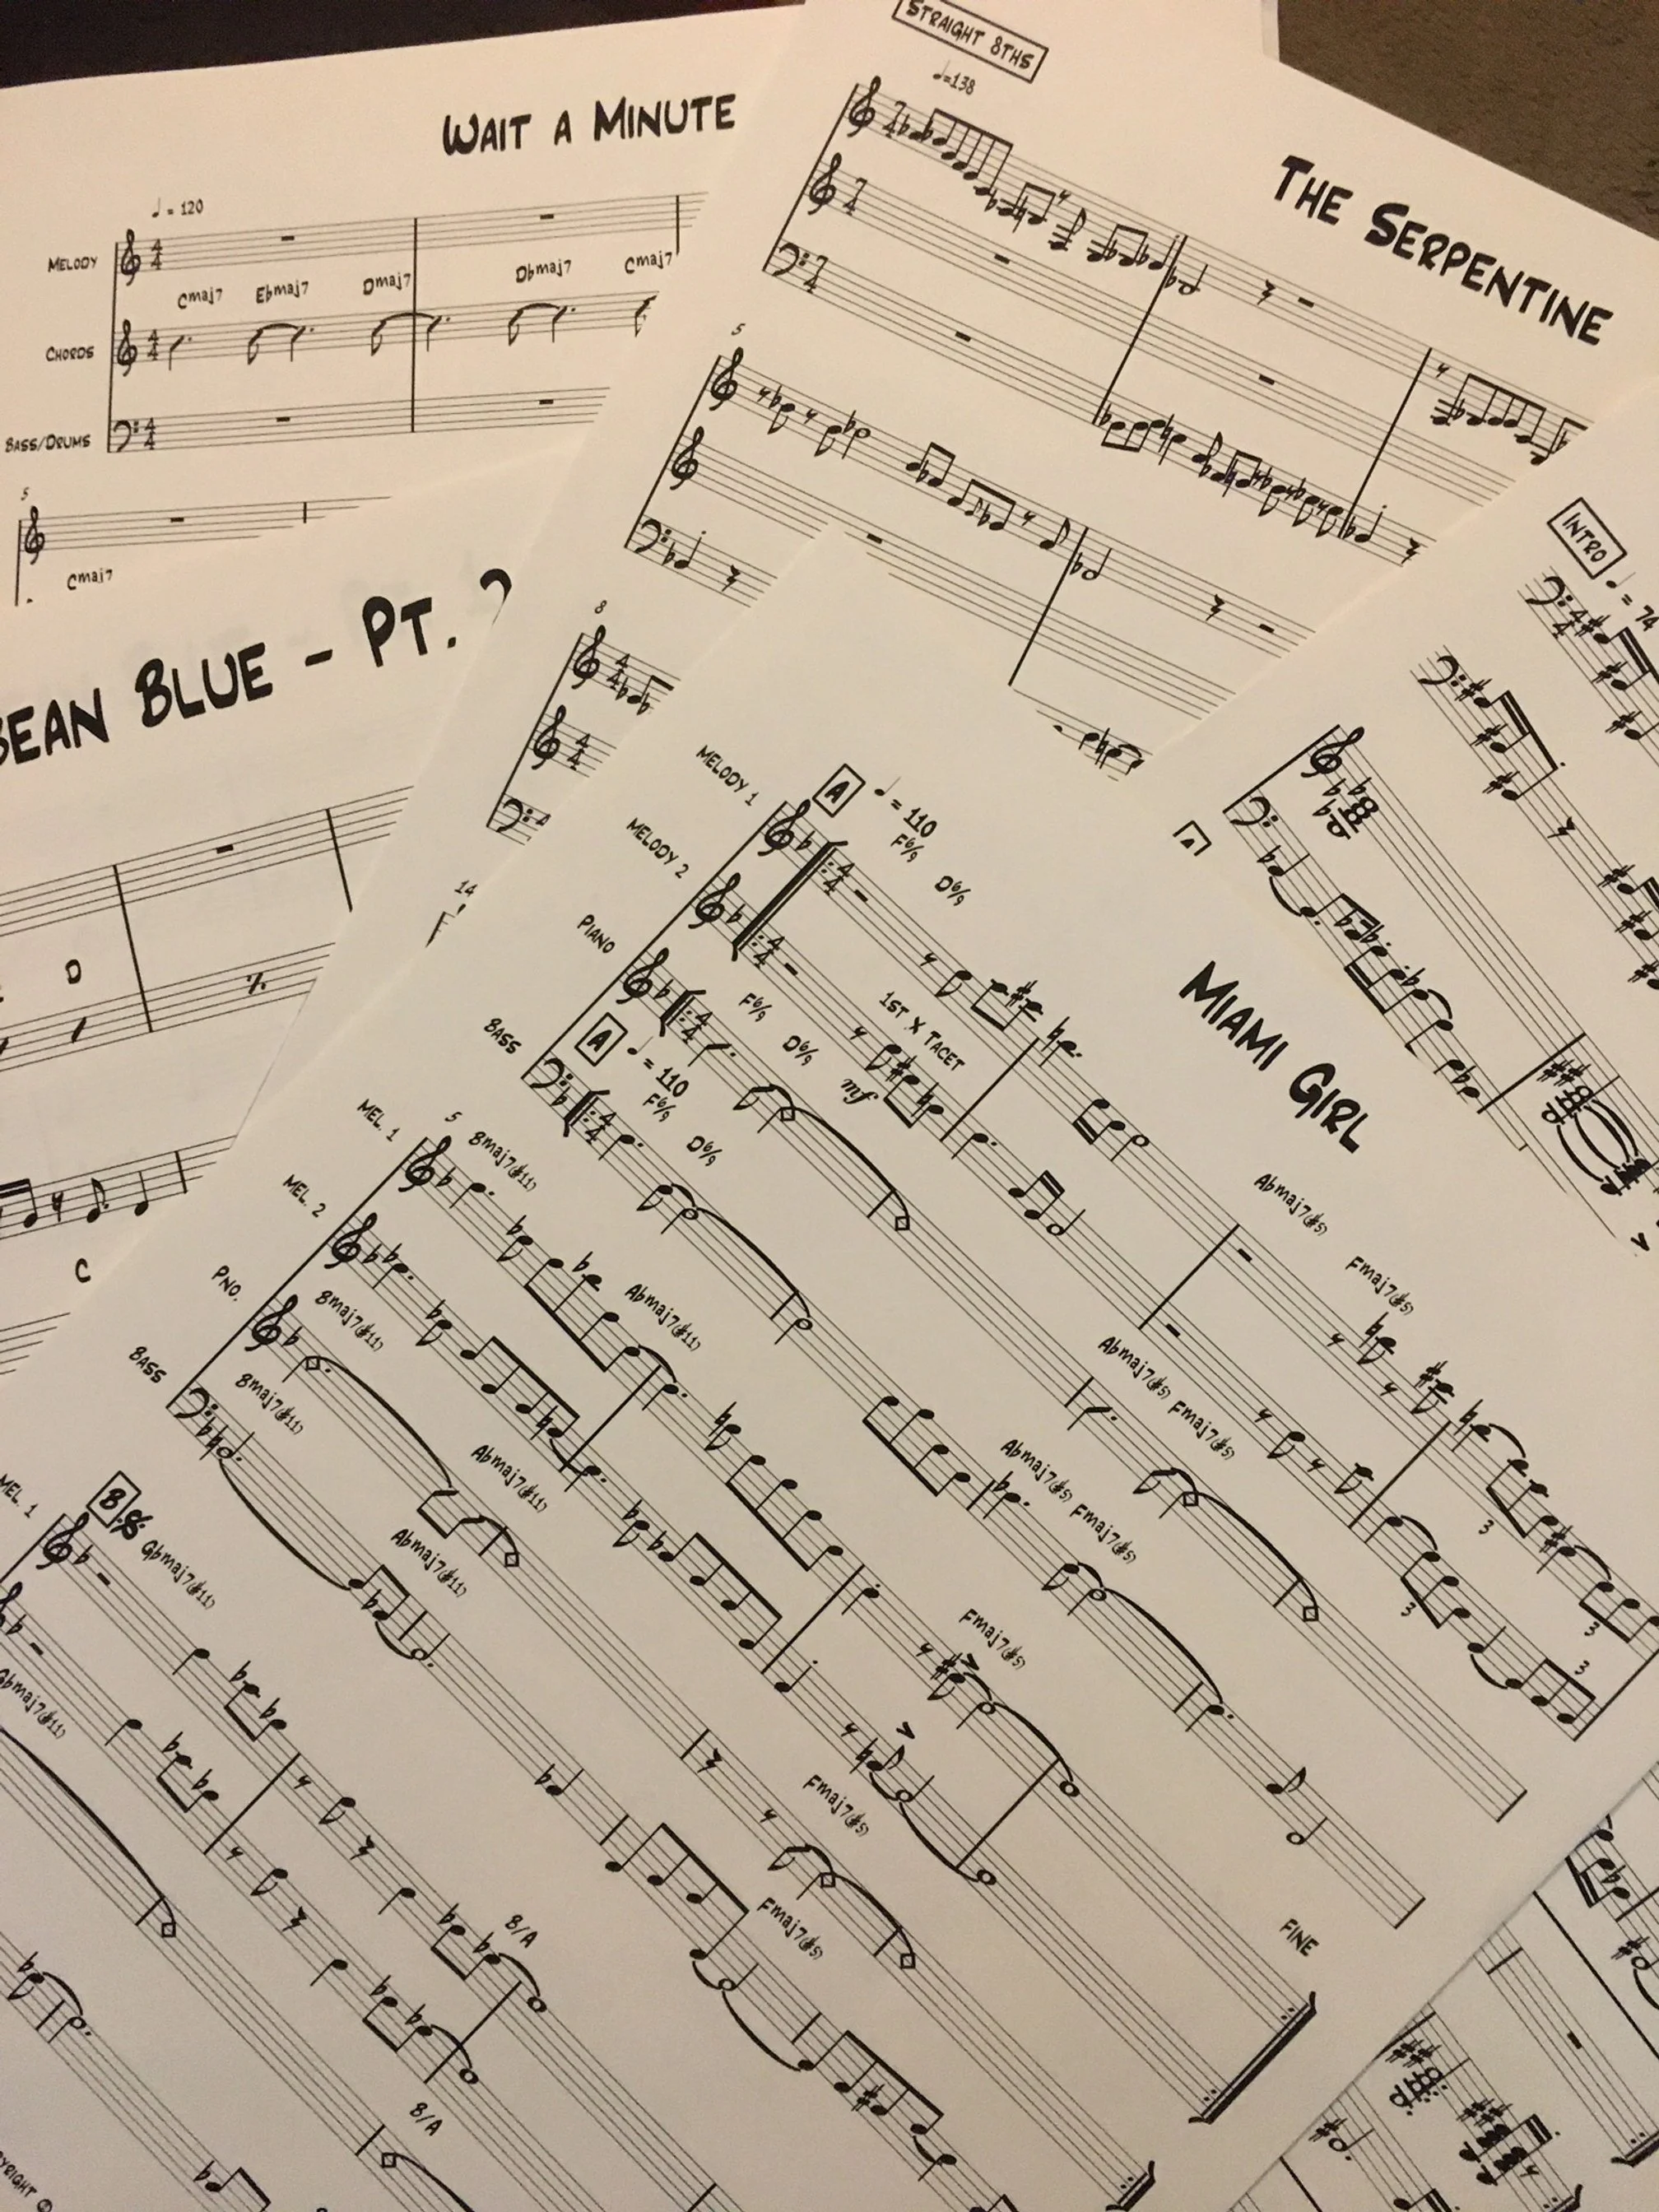 WAIT A MINUTE
♩ = 120
MELODY
Cmaj7 Ebmaj7 Dmaj7 Dbmaj7 Cmaj7
CHORDS
BASS/DRUMS
5
Cmaj7
BEAN BLUE - PT.
D
C
STRAIGHT 8THS
♩=138
THE SERPENTINE
5
8
14
INTRO
♩ = 74
MIAMI GIRL
A ♩ = 110
MELODY 1
F6/9 D6/9
Abmaj7(#5) Fmaj7(#5)
MELODY 2
1ST X TACET
mf
3 3
PIANO
F6/9 D6/9
Abmaj7(#5) Fmaj7(#5)
3 3
A ♩ = 110
BASS
F6/9 D6/9
Abmaj7(#5) Fmaj7(#5)
5
MEL. 1
Bmaj7(#11) Abmaj7(#11) Fmaj7(#5)
MEL. 2
PNO.
Bmaj7(#11) Abmaj7(#11) Fmaj7(#5)
BASS
Bmaj7(#11) Abmaj7(#11) Fmaj7(#5)
FINE
B
MEL. 1
Gbmaj7(#11) B/A
Gbmaj7(#11) B/A